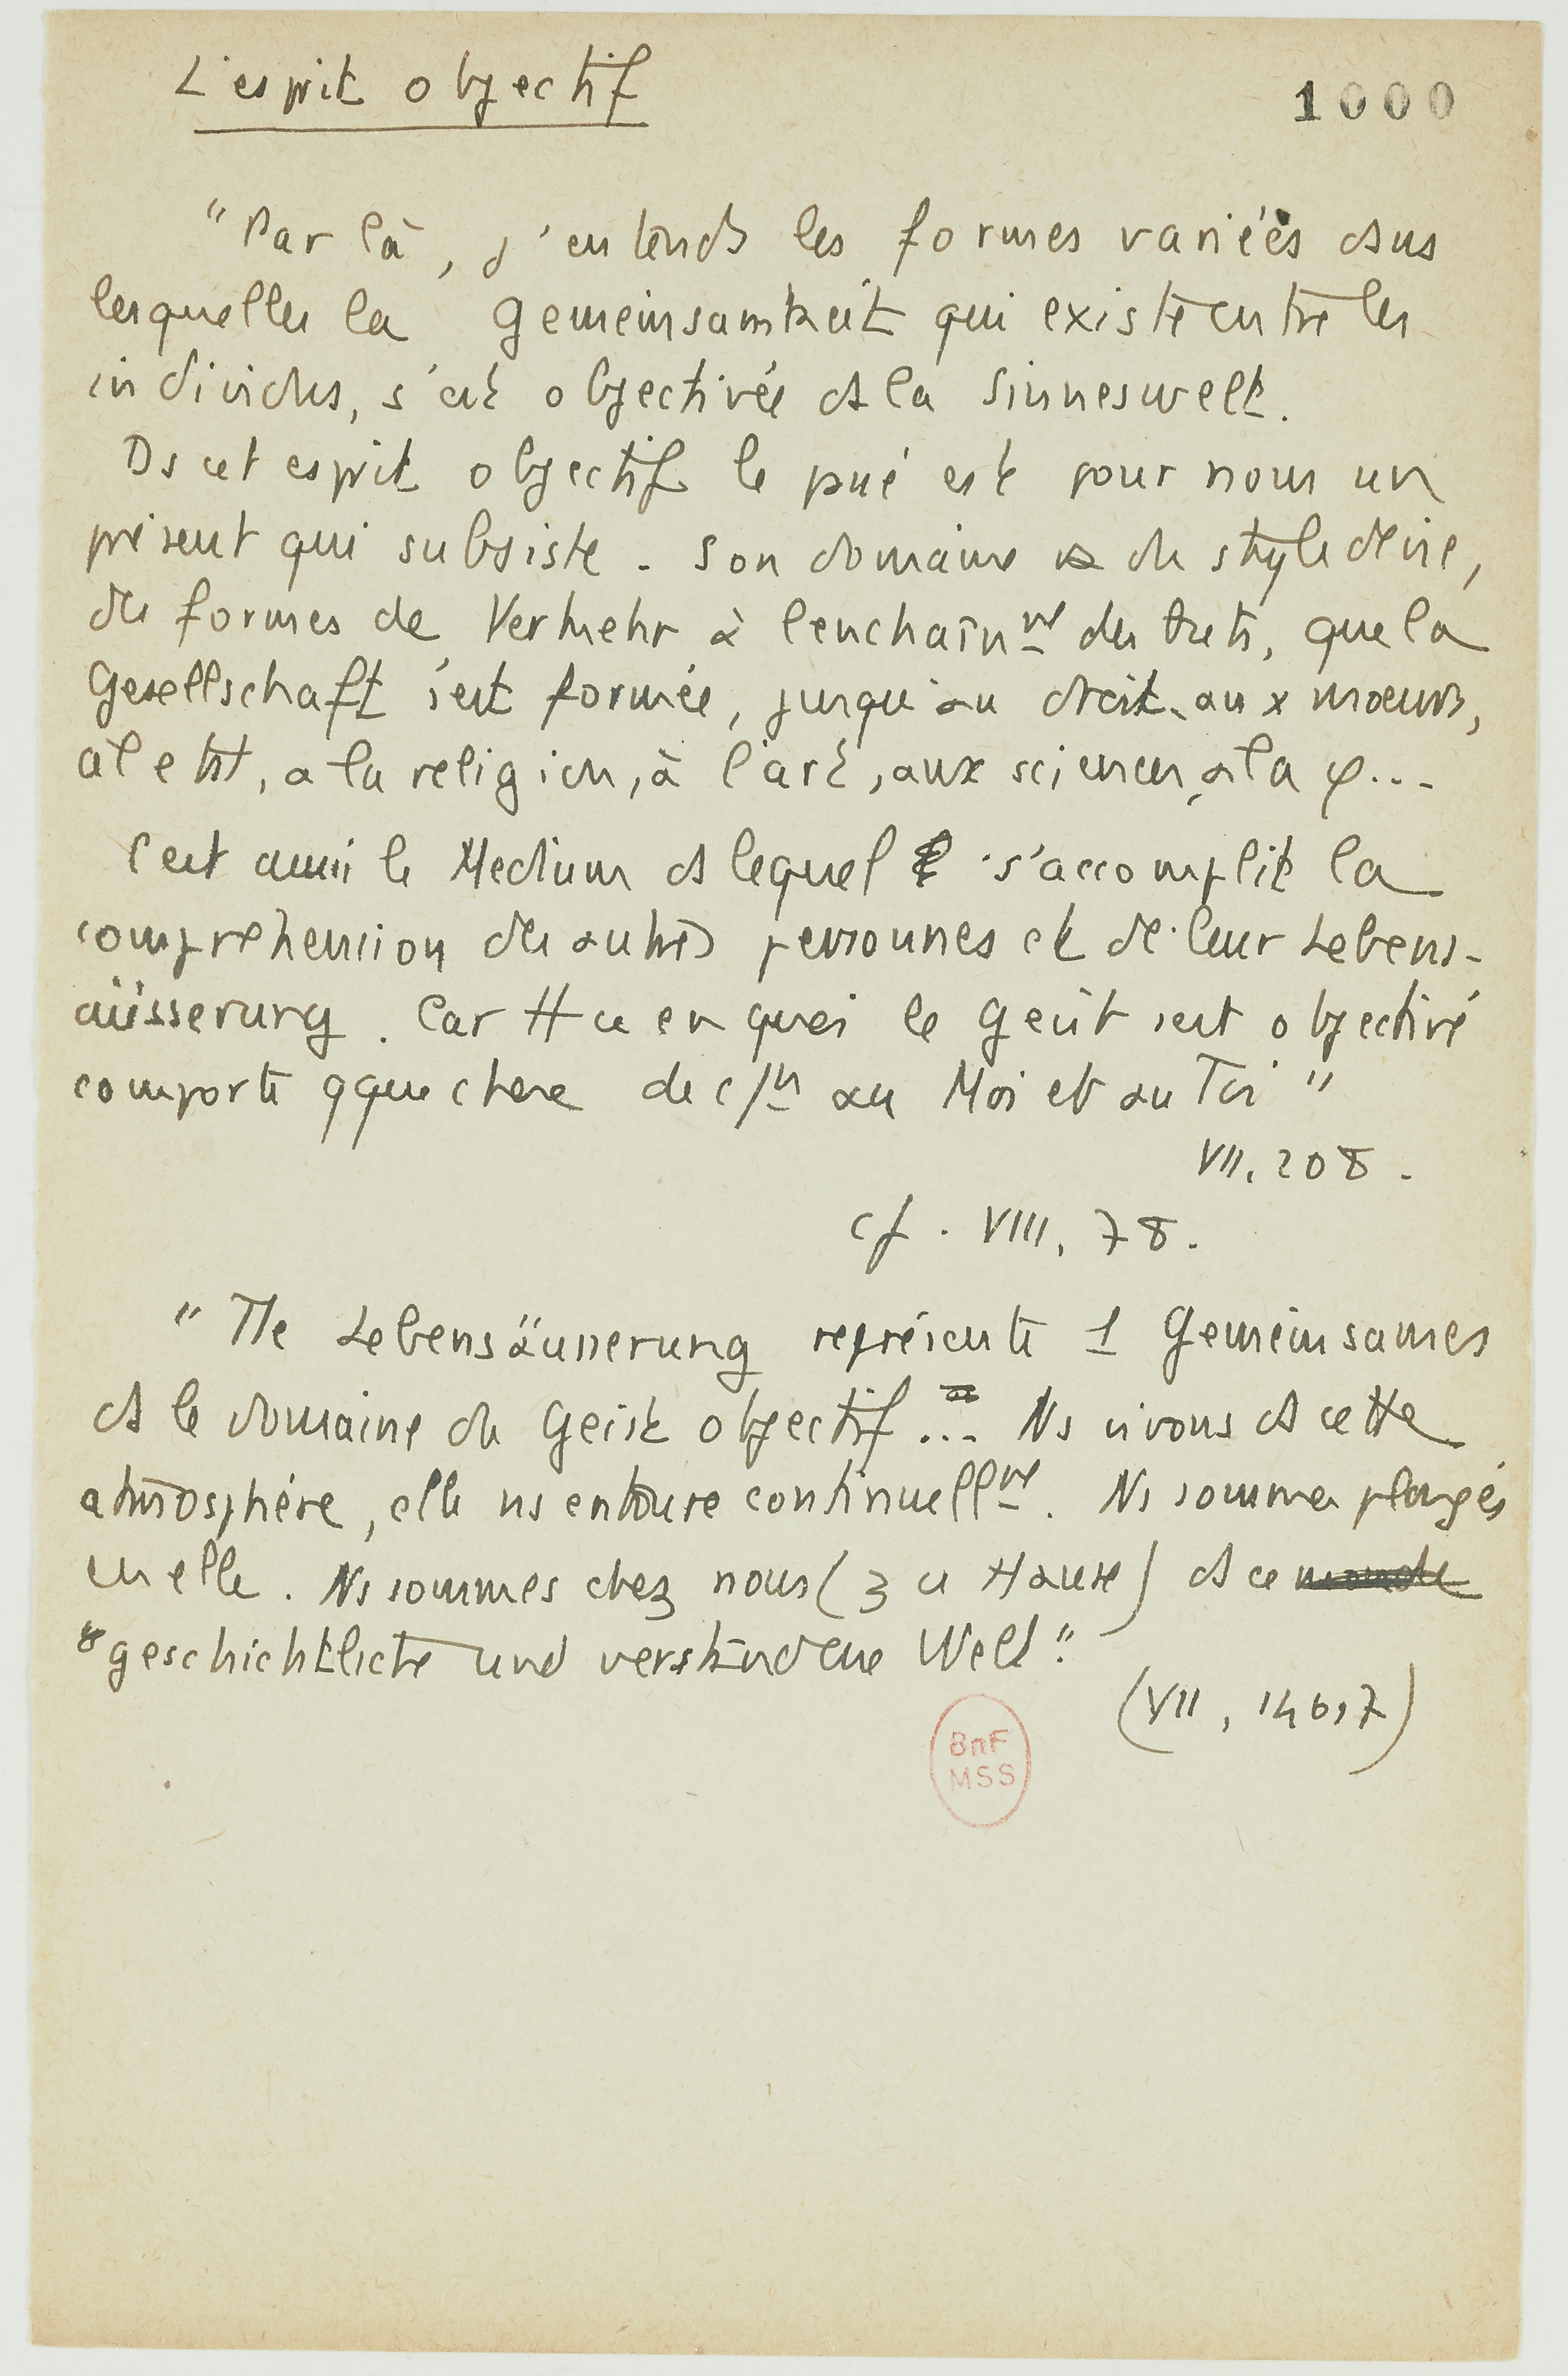 L'esprit objectif
1000
"Par là, j'entends les formes variées dans
lesquelles la Gemeinsamkeit qui existe entre les
individus, s'est objectivée ds la Sinneswelt.
Ds cet esprit objectif le passé est pour nous un
présent qui subsiste. Son domaine va du style de vie,
des formes de Verkehr à l'enchaînmt des buts, que la
Gesellschaft s'est formée, jusqu'au droit, aux mœurs,
à l'etat, a la religion, à l'art, aux sciences, à la φ...
C'est aussi le Medium ds lequel s'accomplit la
compréhension des autres personnes et de leur Lebens-
aüsserung. Car tt ce en quoi le Geist s'est objectivé
comporte qque chose de c/n au Moi et au Toi"
VII, 208.
cf. VIII, 78.
"Tte Lebensäusserung représente 1 Gemeinsames
ds le domaine du Geist objectif... Ns vivons ds cette
atmosphère, elle ns entoure continuellmt. Ns sommes plongés
en elle. Ns sommes chez nous (zu Hause) ds ce monde
"geschichtliche und verstandene Welt".
(VII, 146,7)
BnF
MSS